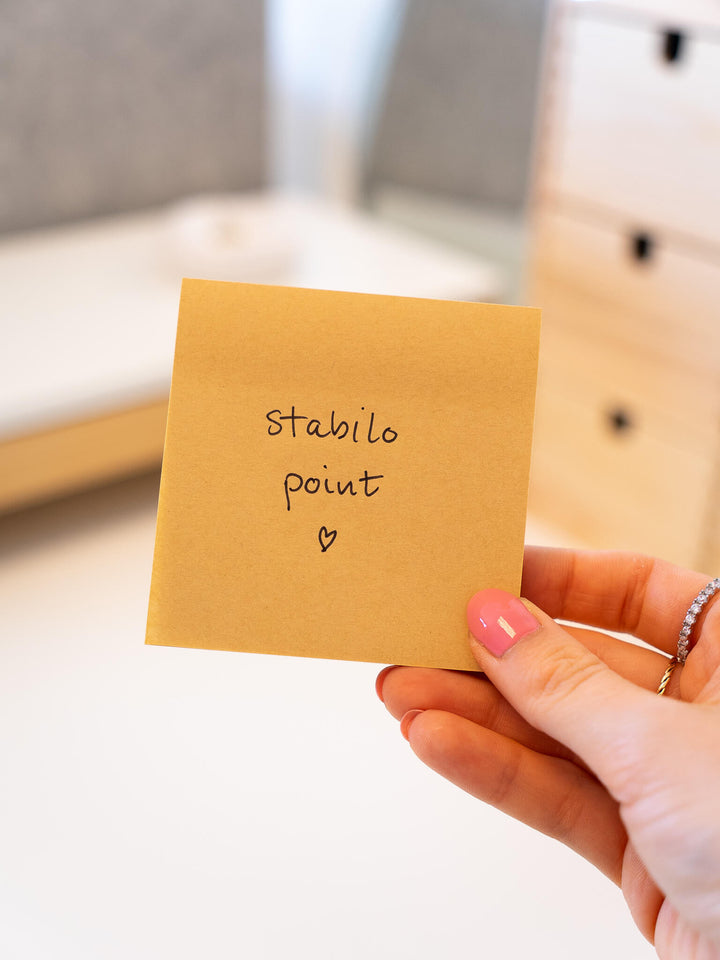 stabilo
point
♡